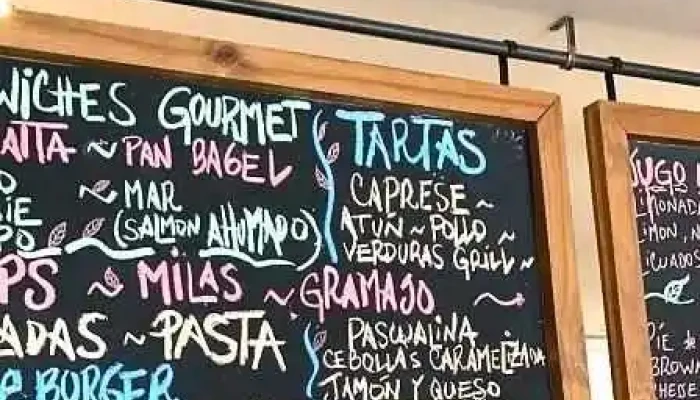 WICHES GOURMET
ATTA ~ PAN BAGEL
MAR
(SALMON AHUMADO)
PS ~ MILAS ~ GRAMAJO
ADAS ~ PASTA
BURGER
TARTAS
CAPRESE ~
ATÚN ~ POLLO ~
VERDURAS GRILL ~
PASCUALINA
CEBOLLAS CARAMELIZADA
JAMÓN Y QUESO
JUGO
LIMONADA
LIMON, N
LICUADOS
PIE *
BROWN
CHEESE